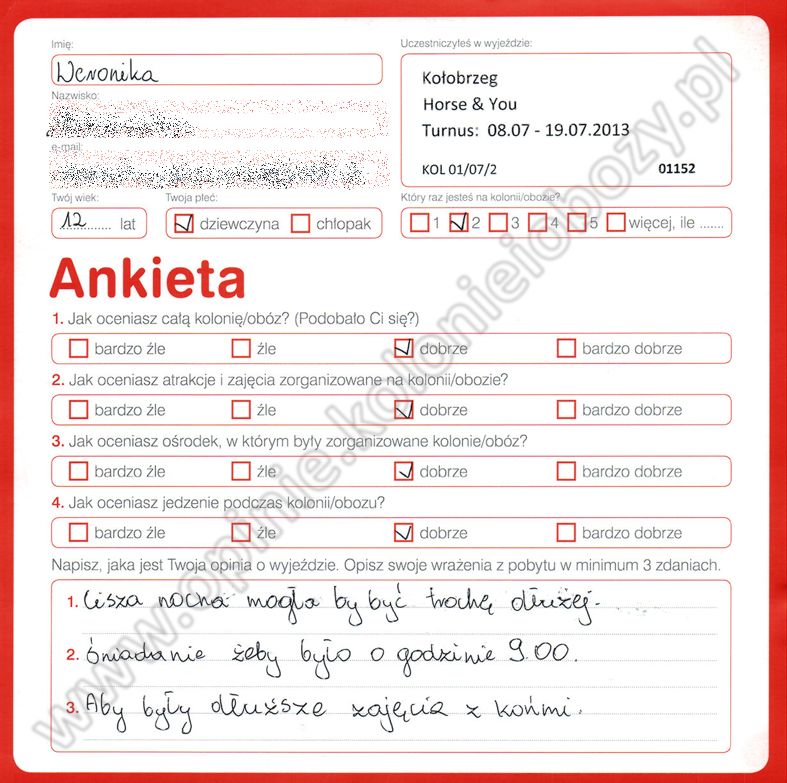 Imię:
Weronika
Nazwisko:
e-mail:
Uczestniczyłeś w wyjeździe:
Kołobrzeg
Horse & You
Turnus: 08.07 - 19.07.2013
KOL 01/07/2 01152
Twój wiek:
12 lat
Twoja płeć:
dziewczyna chłopak
Który raz jesteś na kolonii/obozie?
1 2 3 4 5 więcej, ile .......
Ankieta
1. Jak oceniasz całą kolonię/obóz? (Podobało Ci się?)
bardzo źle źle dobrze bardzo dobrze
2. Jak oceniasz atrakcje i zajęcia zorganizowane na kolonii/obozie?
bardzo źle źle dobrze bardzo dobrze
3. Jak oceniasz ośrodek, w którym były zorganizowane kolonie/obóz?
bardzo źle źle dobrze bardzo dobrze
4. Jak oceniasz jedzenie podczas kolonii/obozu?
bardzo źle źle dobrze bardzo dobrze
Napisz, jaka jest Twoja opinia o wyjeździe. Opisz swoje wrażenia z pobytu w minimum 3 zdaniach.
1. Cisza nocna mogła by być trochę dłużej.
2. Śniadanie żeby było o godzinie 9.00.
3. Aby były dłuższe zajęcia z końmi.
www.opinie.kolonieiobozy.pl